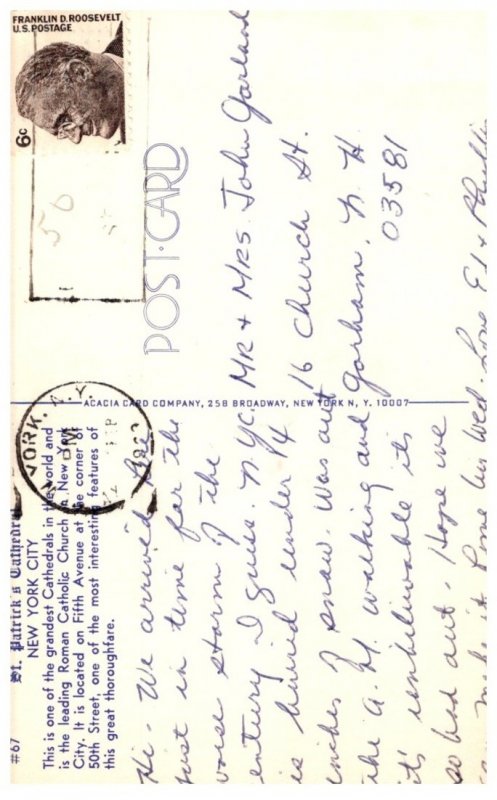 FRANKLIN D. ROOSEVELT
U.S. POSTAGE
6c
50
#67
St. Patrick's Cathedral
NEW YORK CITY
This is one of the grandest Cathedrals in the world and
is the leading Roman Catholic Church in New York
City. It is located on Fifth Avenue at the corner of
50th Street, one of the most interesting features of
this great thoroughfare.
YORK, N.Y.
PM
POST-CARD
ACACIA CARD COMPANY, 258 BROADWAY, NEW YORK N, Y. 10007
Hi - We arrived
just in time for the
worse storm of the
entury I guess. NYC.
is buried under 14
inches of snow. Was out
the A.M. walking and
it's unbelievable its
so bad out. Hope we
make it home by Wed. Love Ed + Phyllis
Mr + Mrs. John Garland
16 Church St.
Gorham, N. H.
03581